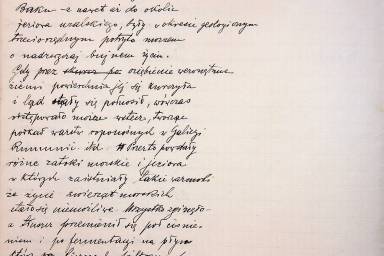 Baku – a nawet aż do okolic
jeziora uralskiego, były w okresie geologicznym
trzeciorzędnym pokryte morzem
o nadzwyczaj bujnem życiu.
Gdy przez oziębienie wewnętrzne
ziemi powierzchnia jéj się kurczyła
i ląd stały się podnosił, wówczas
ustępowało morze wstecz, tworząc
pokład warstw roponośnych w Galicyi
Rumunii itd. Przeto powstały
różne zatoki morskie i jeziora
w których zaistniały takie warunki
że życie zwierząt morskich
stało się niemożliwe. Wszystko zginęło
a tłuszcz przemienił się pod ciśnie-
niem i po fermentacyi na płyn